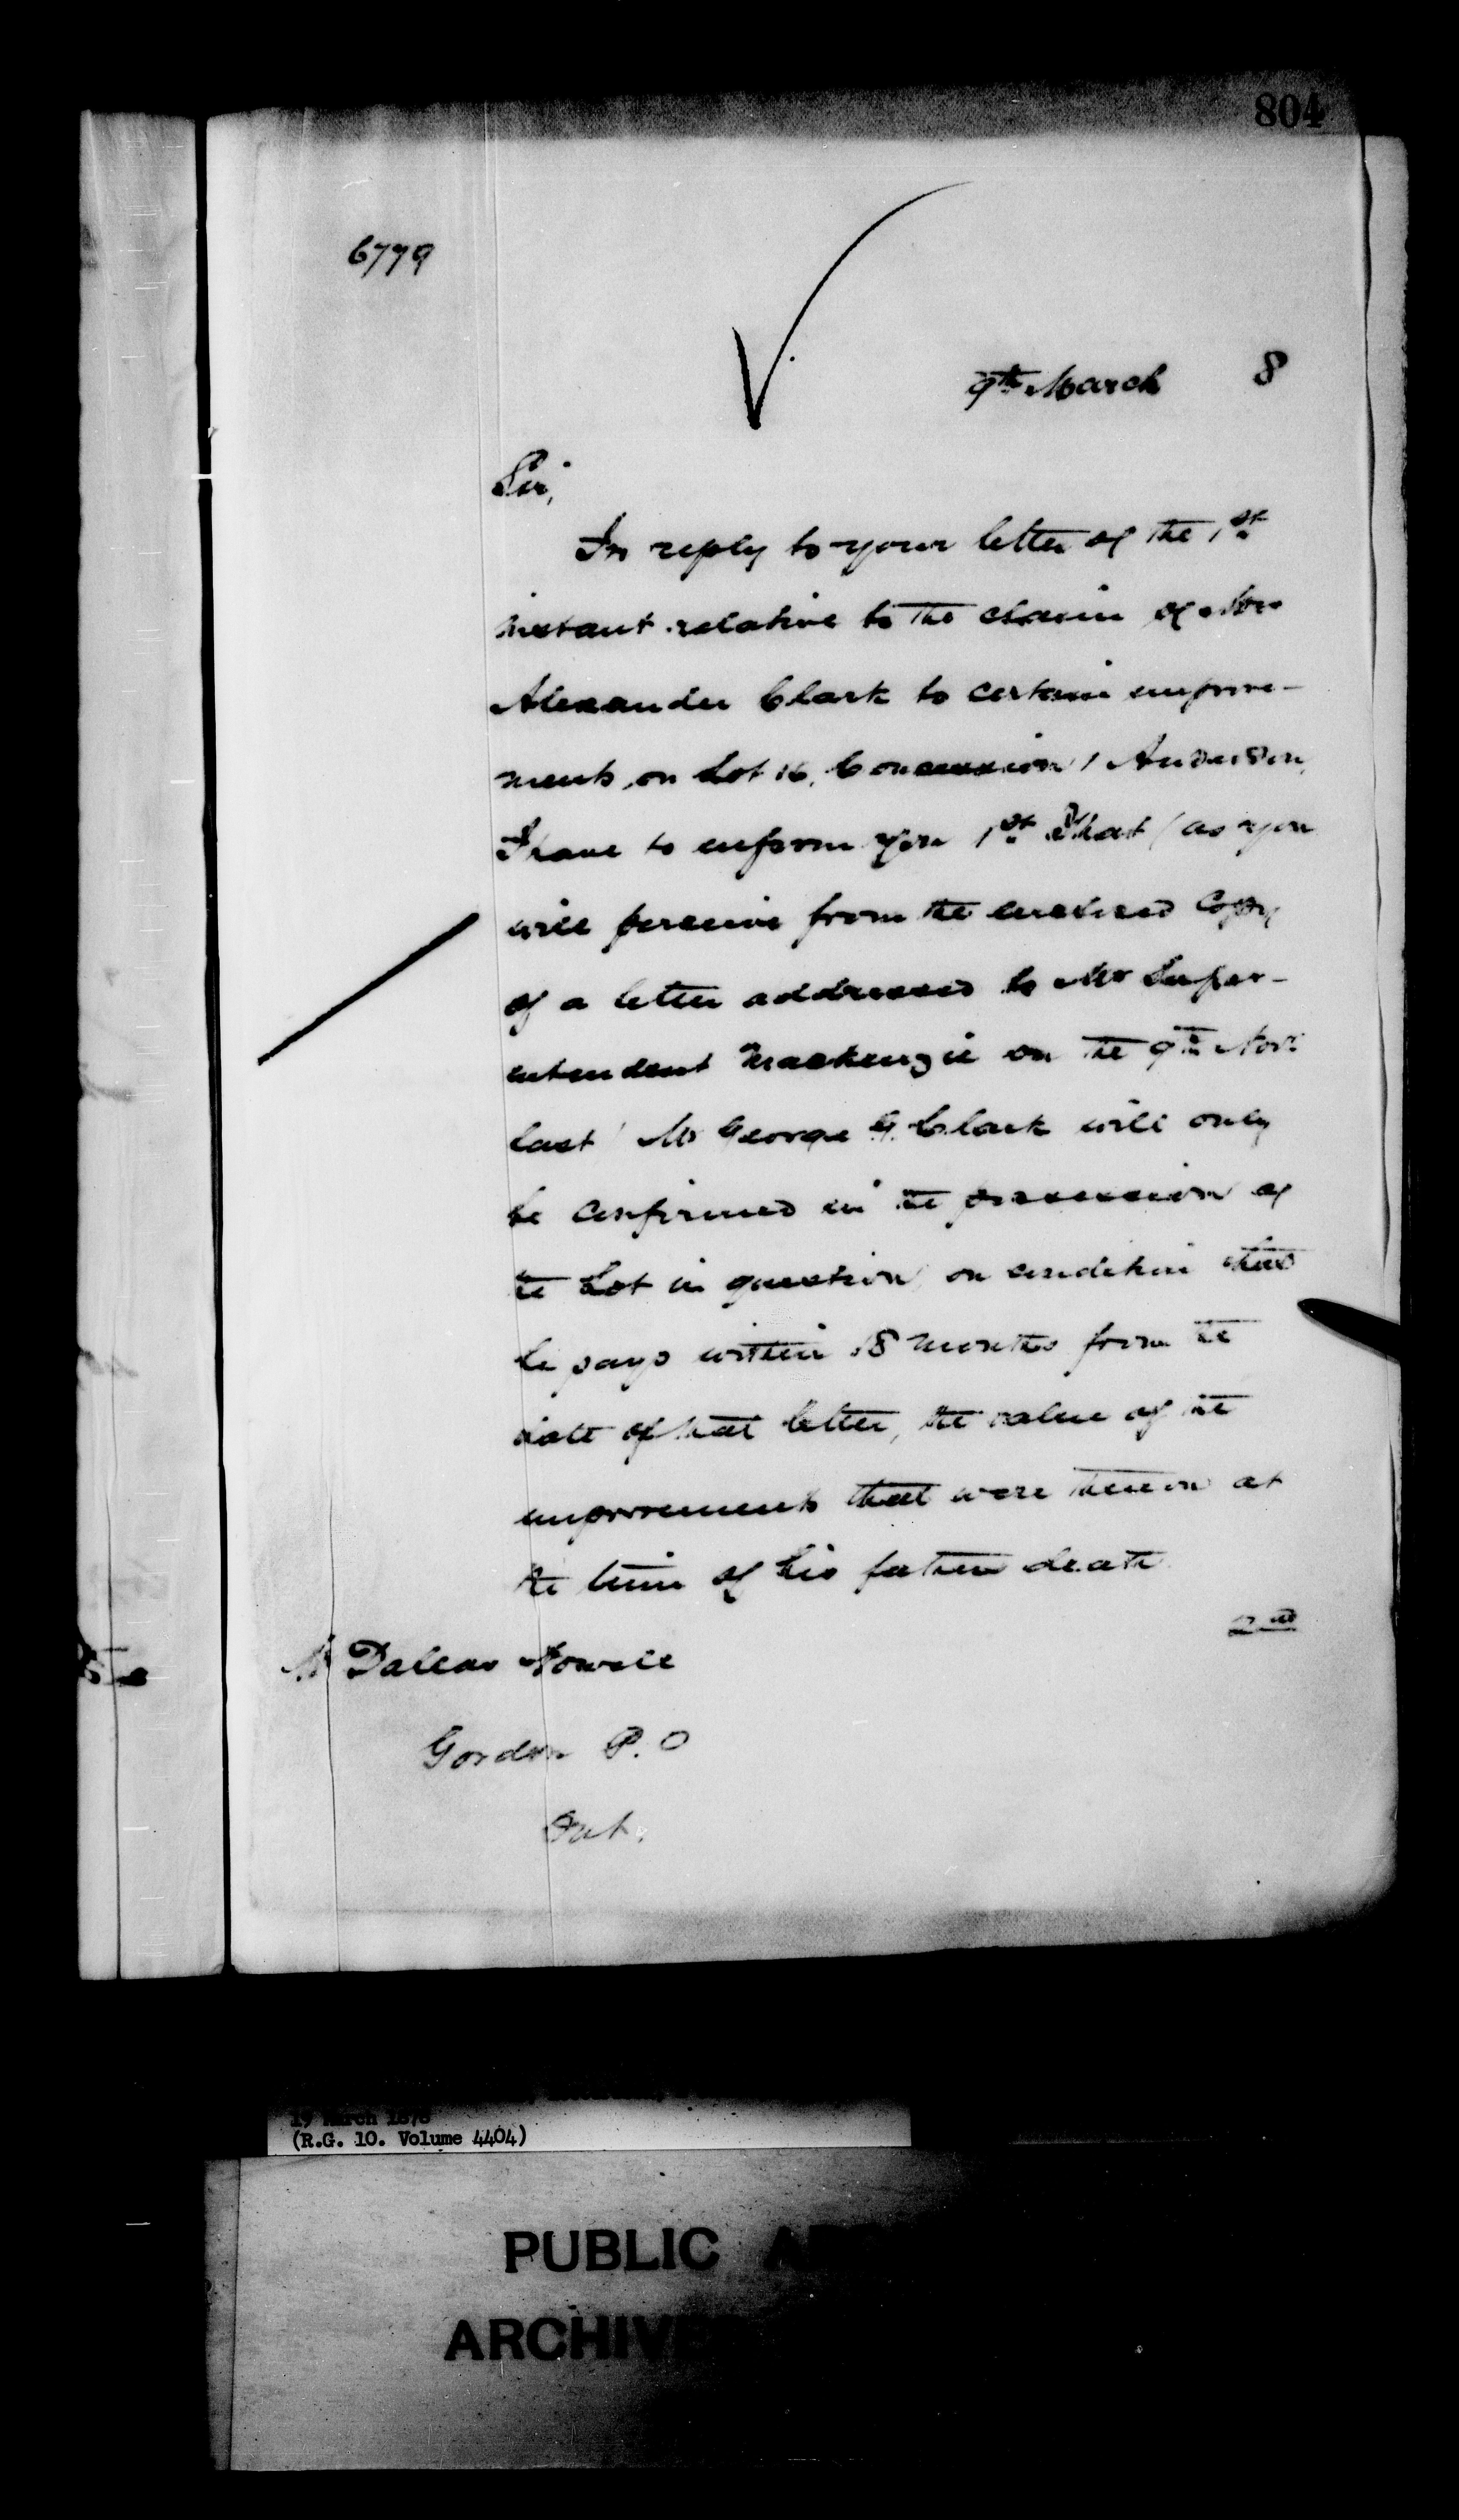 804
6779
9th March 8
Sir,
In reply to your letter of the 1st
instant relative to the claim of Mr
Alexander Clark to certain improve-
ments on Lot 16, Concession 1 Anderdon,
I have to inform you 1st That (as you
will perceive from the enclosed Copy
of a letter addressed to Mr Super-
intendent Mackenzie on the 9th Novr
last) Mr George G. Clark will only
be confirmed in the possession of
the Lot in question, on condition that
he pays within 18 months from the
date of that letter, the value of the
improvements that were thereon at
the time of his father death
2nd
Mr Dallas Nowell
Gordon P.O
Ont.
19 March 1878
(R.G. 10. Volume 4404)
PUBLIC
ARCHIVE